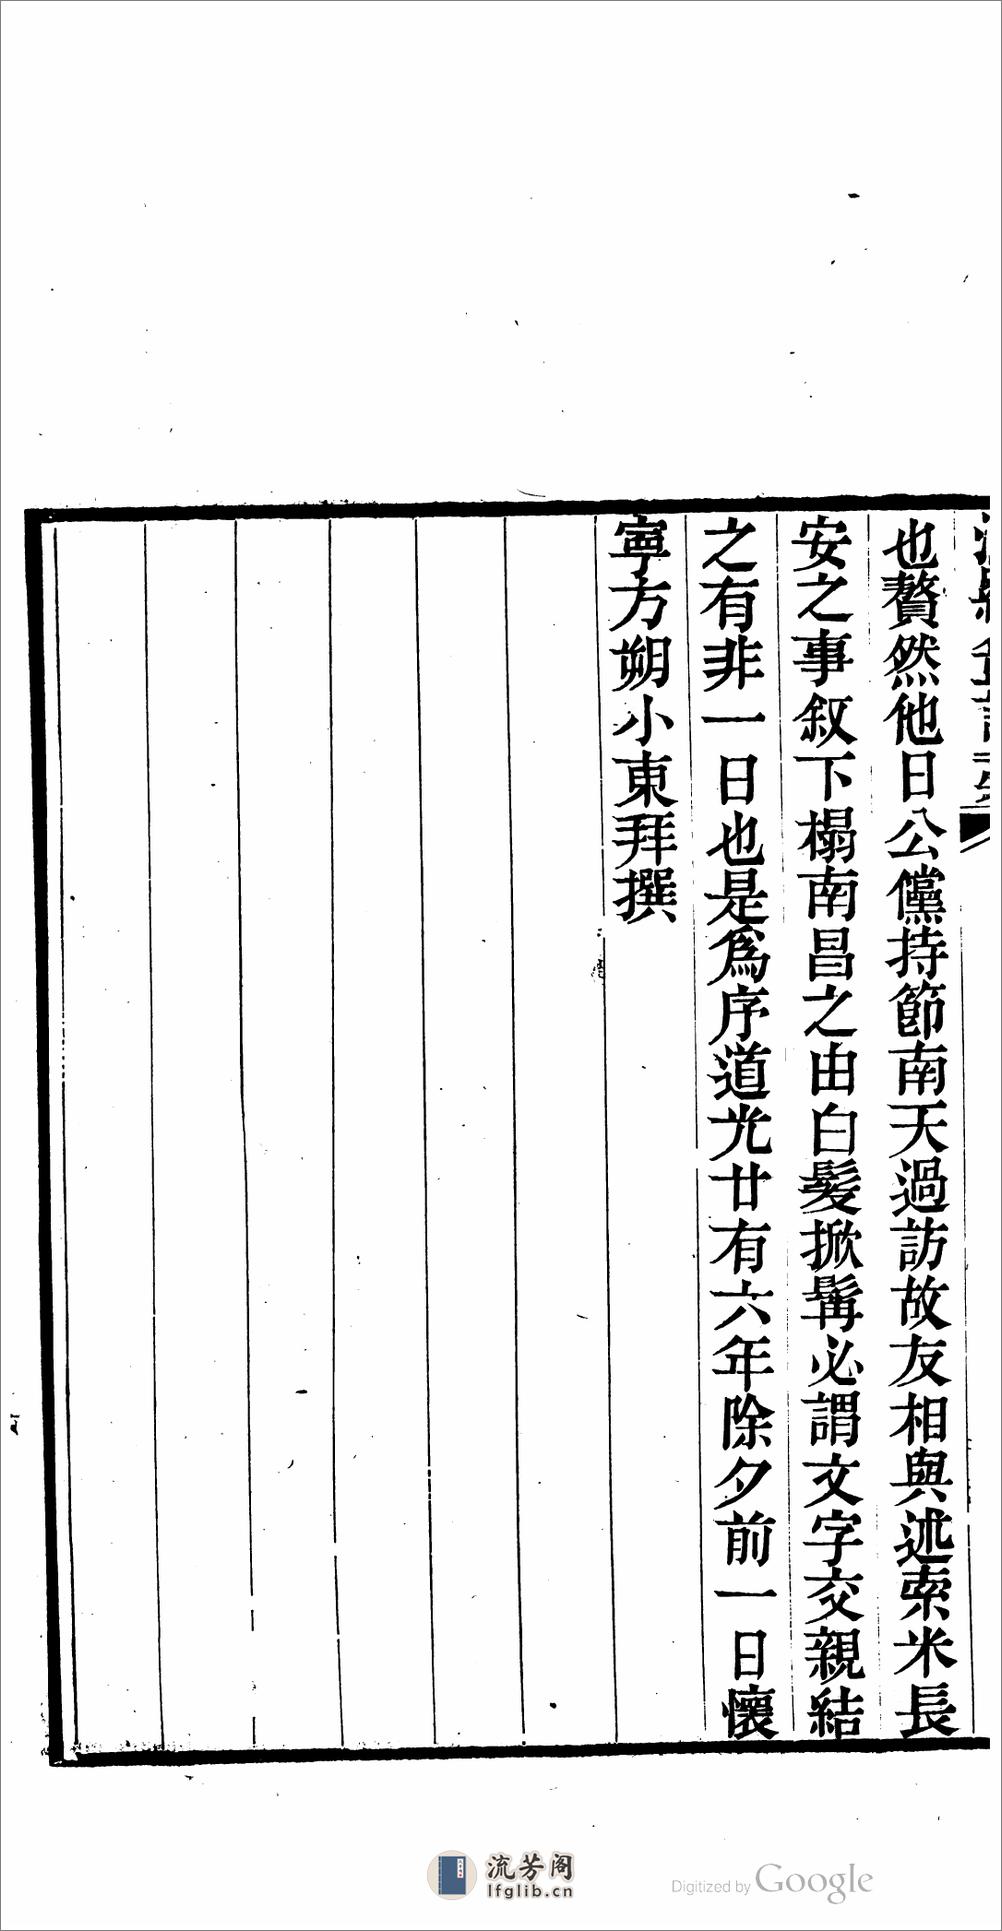 也贅然他日公儻持節南天過訪故友相與述索米長
安之事叙下榻南昌之由白髮掀髯必謂文字交親結
之有非一日也是為序道光廿有六年除夕前一日懷
寧方朔小東拜撰
流芳阁
lfglib.cn
Digitized by Google